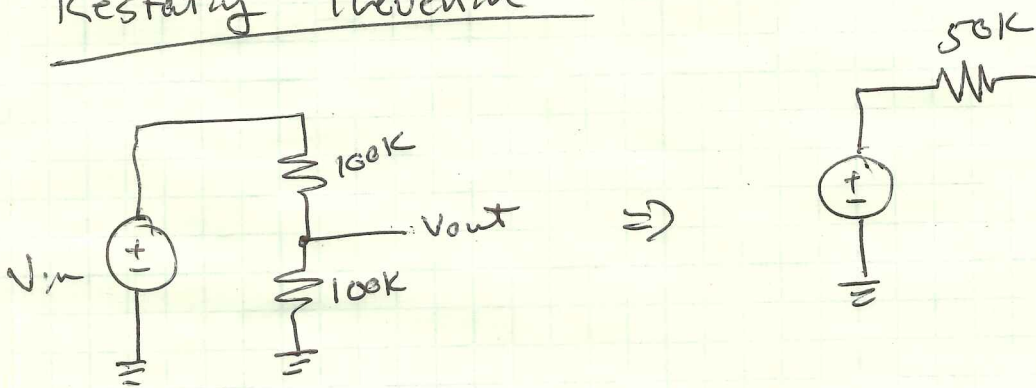 Restating Thevenin
50K
100K
Vout
⇒
Vin
+
-
100K
+
-